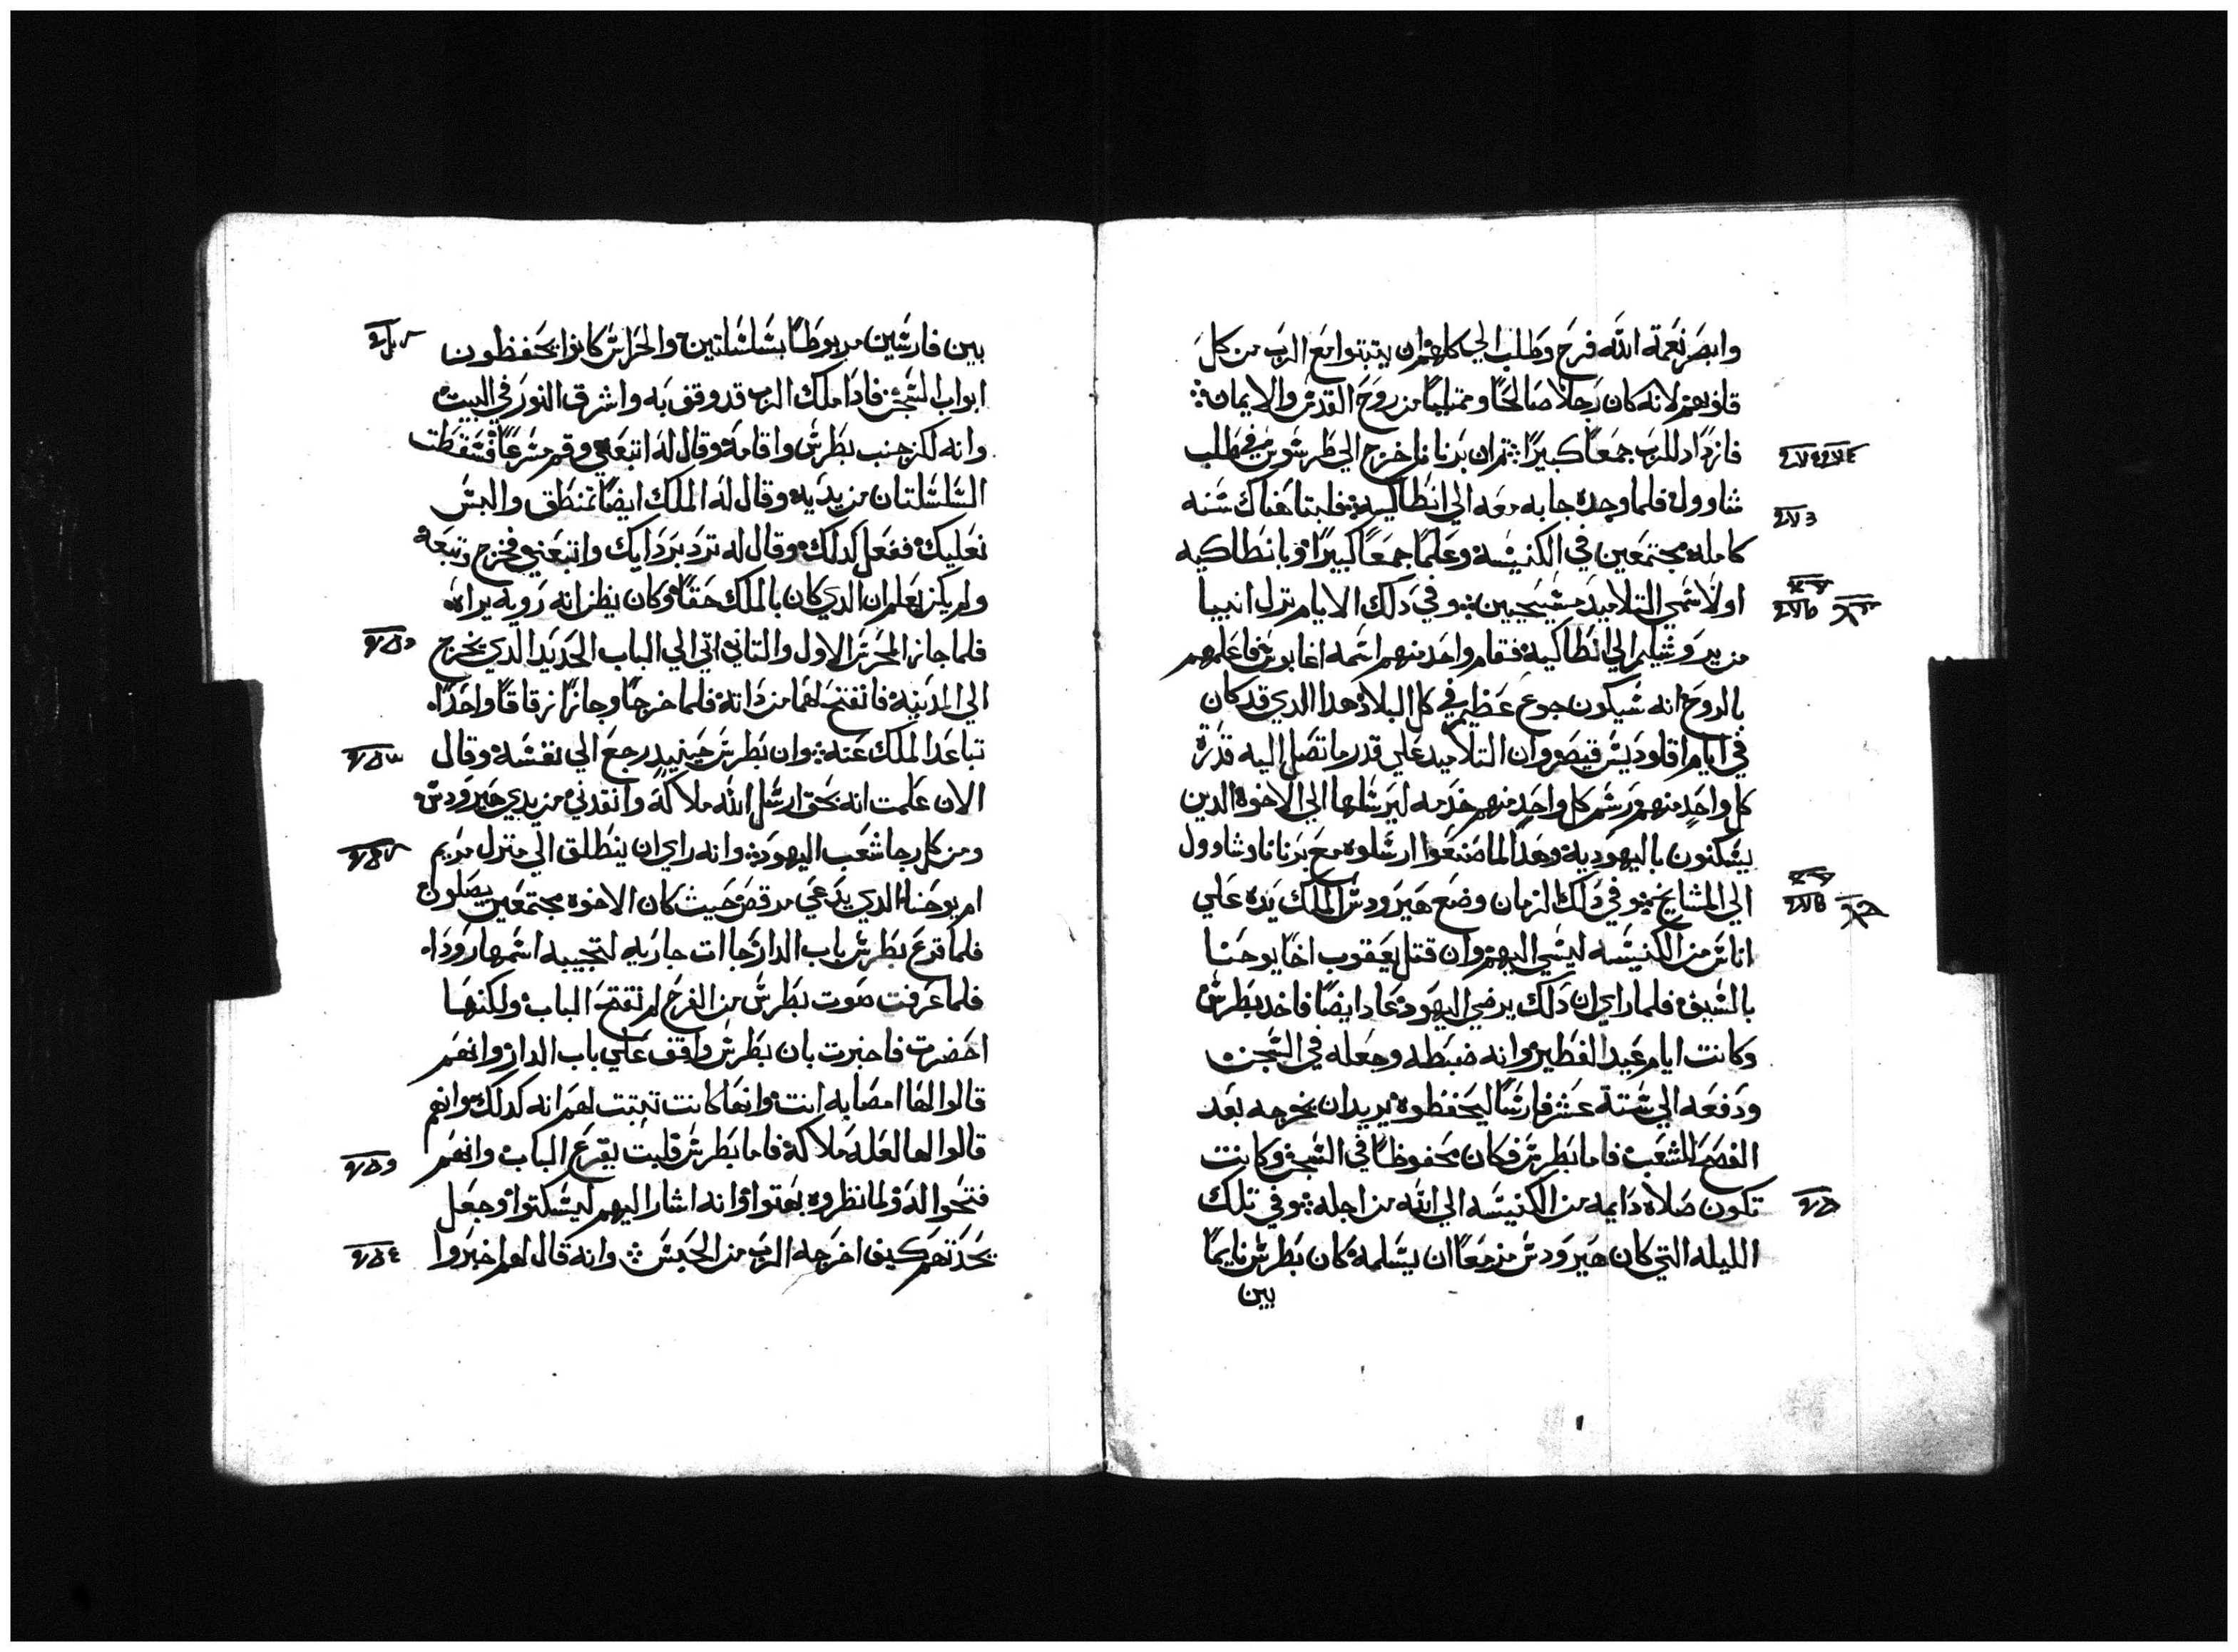 وابصر نعمة الله فرح وطلب الي كلهم ان يتبتوا مع الرب من كل
قلوبهم لانه كان رجلا صالحا وممتليا من روح القدس والايمان
فازداد للرب جمعا كبيرا ثم ان برنابا خرج الي طرسوس في طلب
شاوول فلما وجده جا به معه الي انطاكيه فلبتا هناك سنه
كامله مجتمعين في الكنيسة وعلما جمعا كبيرا وبانطاكيه
اولا سمي التلاميد مسيحيين وفي دلك الايام نزل انبيا
من يروشليم الي انطاكية فقام واحد منهم اسمه اغابوس فاعلمهم
بالروح انه سيكون جوع عظيم في كل البلاد هدا الدي قد كان
في ايام اقلوديس قيصر وان التلاميد علي قدر ما تصل اليه قدرة
كل واحد منهم رسم كل واحد منهم خدمه ليرسلها الي الاخوة الدين
يسكنون باليهودية وهدا لما صنعوا ارسلوه مع برنابا وشاوول
الي المشايخ وفي دلك الزمان وضع هيرودس الملك يده علي
اناس من الكنيسه ليسي اليهم وان قتل يعقوب اخا يوحنا
بالسيف فلما راي ان دلك يرضي اليهود عاد ايضا فاخد بطرس
وكانت ايام عيد الفطير وانه ضبطه وجعله في السجن
ودفعه الي ستة عشر فارسا ليحفظوه يريدان يخرجه بعد
الفصح للشعب فاما بطرس فكان محفوظا في السجن وكانت
تكون صلاه دايمه من الكنيسه الي الله من اجله وفي تلك
الليله التي كان هيرودس مزمعا ان يسلمه كان بطرس نايما
بين
بين فارسين مربوطا بسلسلتين والحراس كانوا يحفظون
ابواب السجن فادا ملك الرب قد وقف به واشرق النور في البيت
وانه لكز جنب بطرس واقامه وقال له اتبعني وقم مسرعا فسقطت
السلسلتان من يديه وقال له الملك ايضا تمنطق والبس
نعليك ففعل كدلك وقال له ترد بردايك واتبعني فخرج وتبعه
ولم يكن يعلم ان الدي كان بالملك حقا وكان يظن انه رويه يراه
فلما جاز المحرس الاول والتاني اتي الي الباب الحديد الدي يخرج
الي المدينه فانفتح لهما من داته فلما خرجا وجازا زقاقا واحدا
تباعد الملك عنه وان بطرس حينيد رجع الي نفسه وقال
الان علمت انه بحق ارسل الله ملاكه وانقدني من يدي هيرودس
ومن كل رجا شعب اليهود وانه راي ان ينطلق الي منزل مريم
ام يوحنا الدي يدعي مرقص حيث كان الاخوه مجتمعين يصلون
فلما قرع بطرس باب الدار جاات جاريه لتجيبه اسمها رودا
فلما عرفت صوت بطرس من الفرح لم تفتح الباب ولكنها
احضرت فاخبرت بان بطرس واقف علي باب الدار وانهم
قالوا لها امصابه انت وانها كانت تبتت لهم انه كدلك وانهم
قالوا لها لعله ملاكه فاما بطرس فلبت يقرع الباب وانهم
فتحوا له ولما نظروه بهتوا وانه اشار اليهم ليسكتوا وجعل
يحدتهم كيف اخرجه الرب من الحبس وانه قال لهم اخبروا